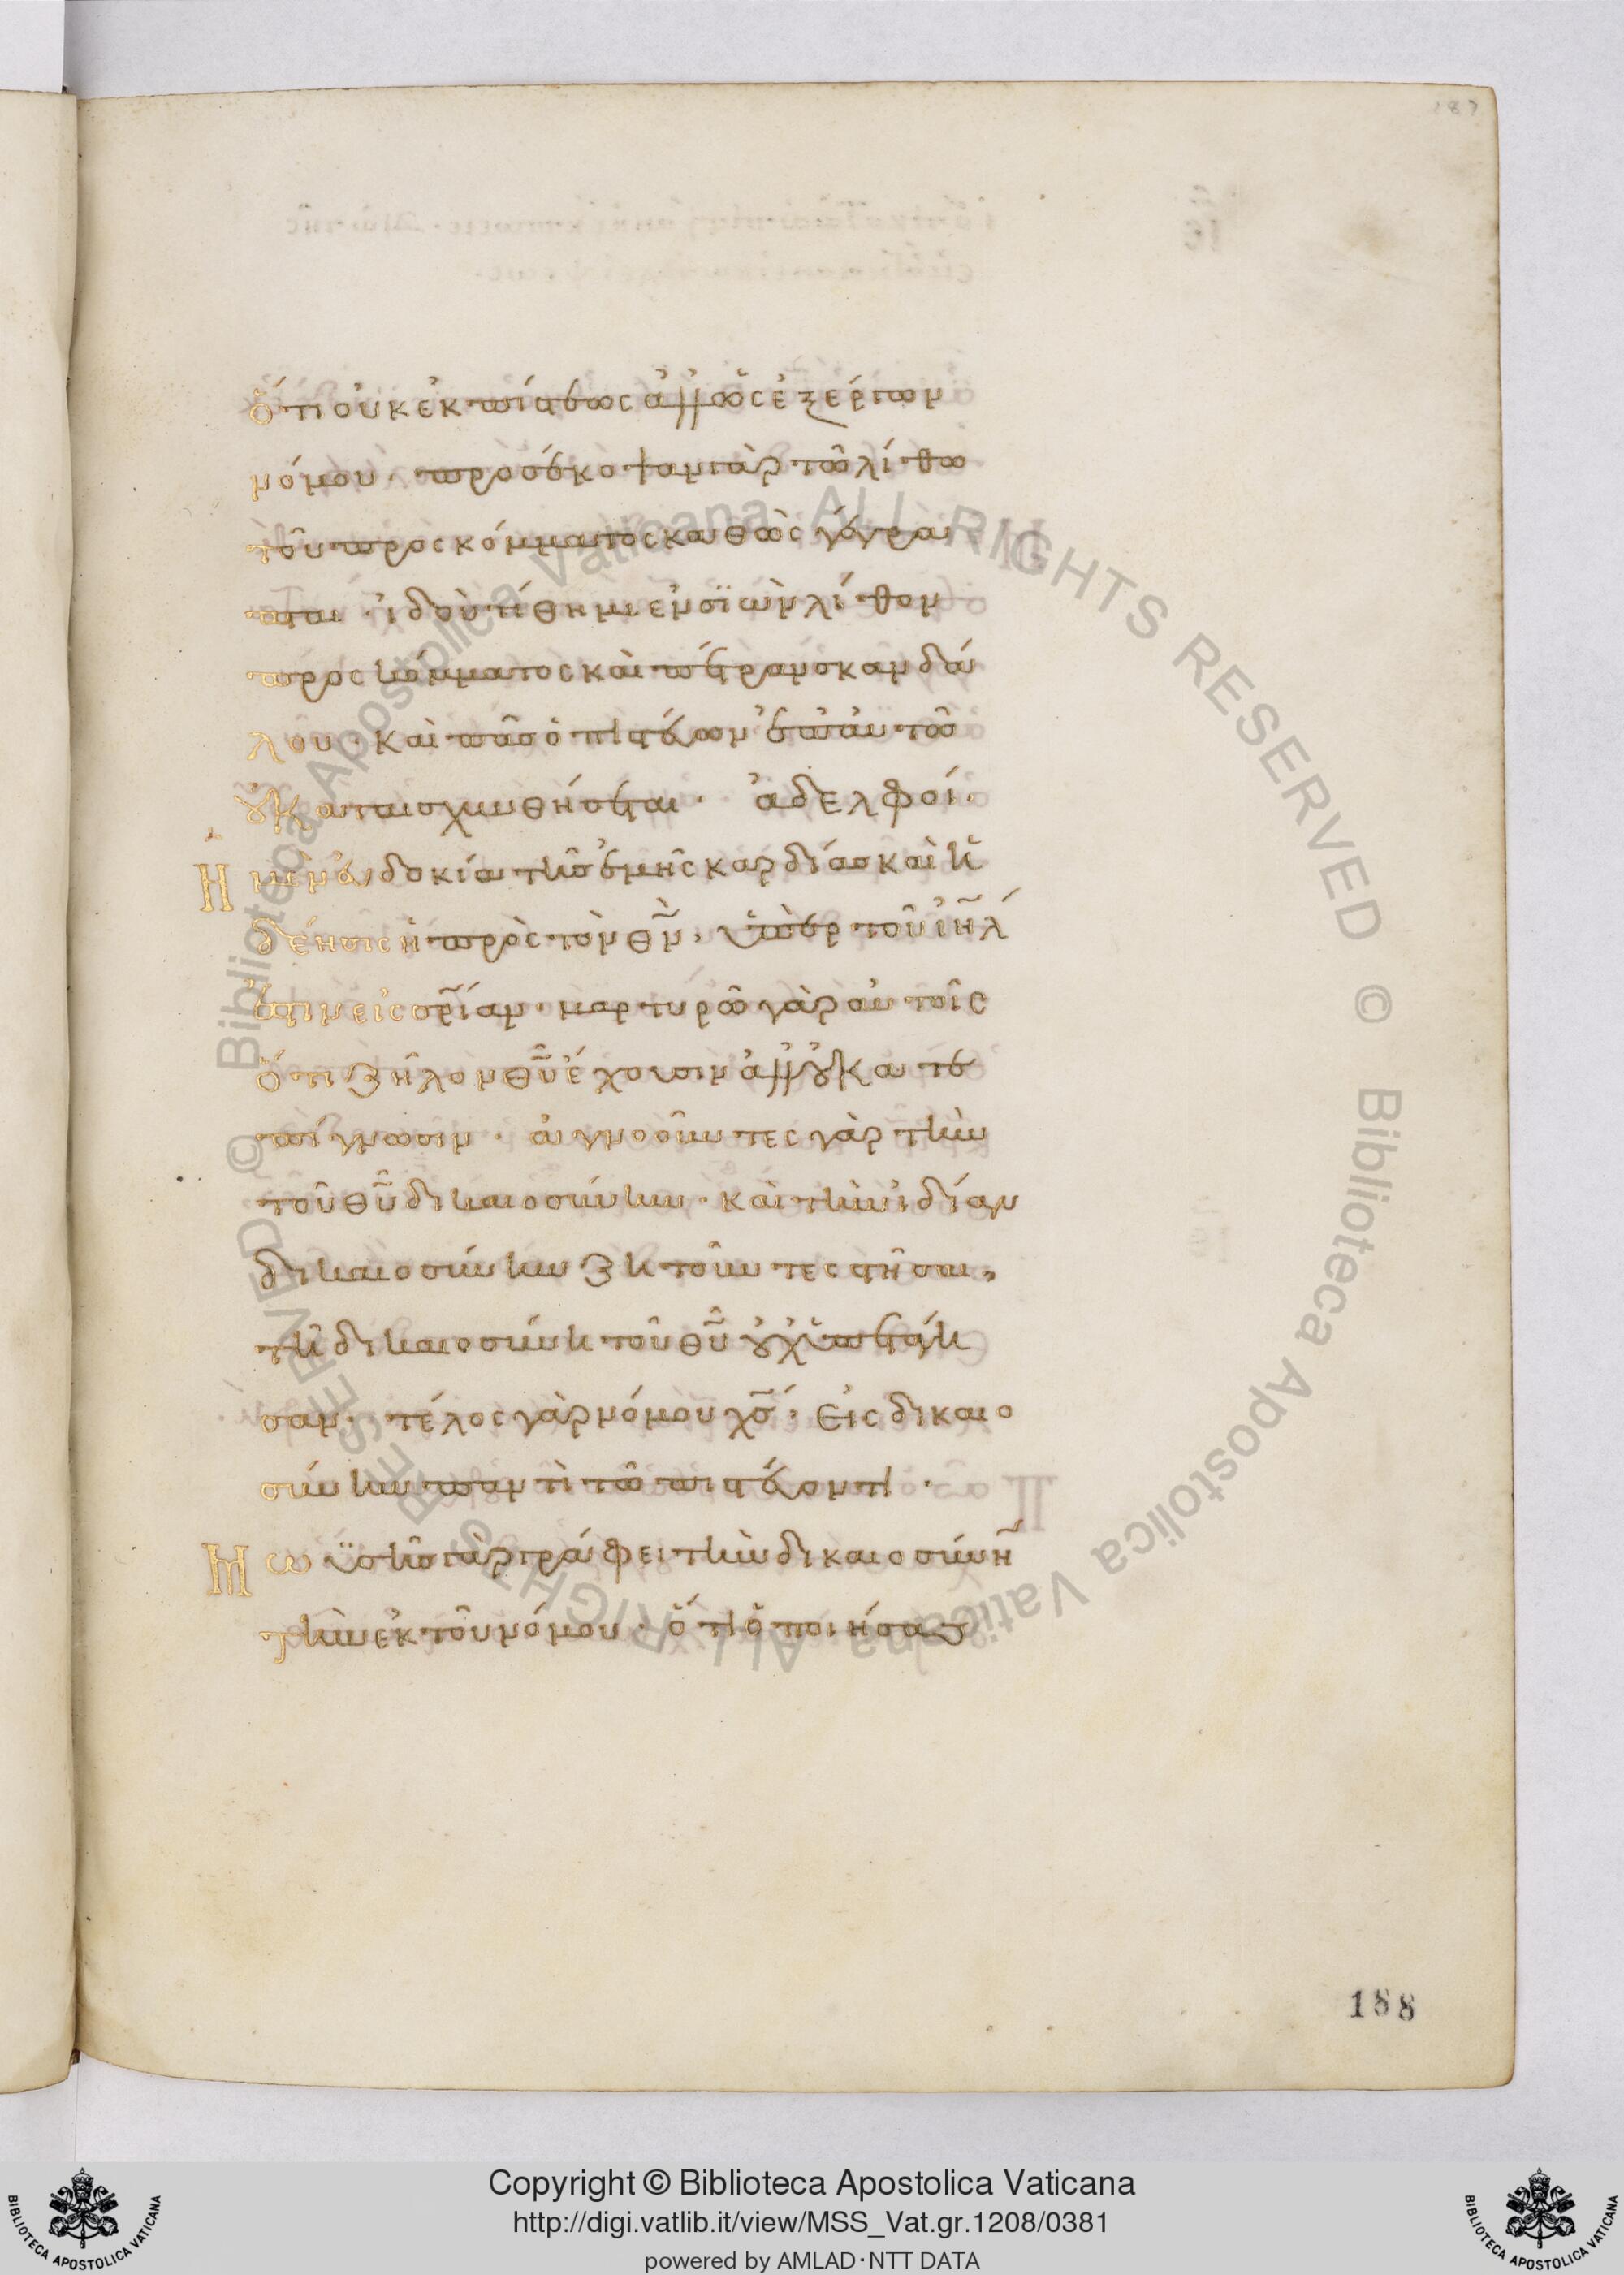 187
ὅτι οὐκ ἐκ πίστεως ἀλλ' ὡς ἐξ ἔργων
νόμου· προσέκοψαν γὰρ τῶ λίθω
τοῦ προσκόμματος καθὼς γέγρα
πται· ἰδοὺ τίθημι ἐν σϊὼν λίθον
προσκόμματος καὶ πέτραν σκανδά
λου· καὶ πᾶς ὁ πιστεύων ἐπ' αὐτῶ
οὐ καταισχυνθήσεται· ἀδελφοί·
Ἡ μὲν εὐδοκία τῆς ἐμῆς καρδίας καὶ ἡ
δέησις ἡ πρὸς τὸν θν̄, ὑπὲρ τοῦ ἰη̄λ
ἐστιν εἰς σρ̄ίαν· μαρτυρῶ γὰρ αὐτοῖς
ὅτι ζῆλον θῡ ἔχουσιν ἀλλ' οὐ κατ' ἐ
πίγνωσιν· ἀγνοοῦντες γὰρ τὴν
τοῦ θῡ δικαιοσύνην· καὶ τὴν ἰδίαν
δικαιοσύνην ζητοῦντες στῆσαι,
τῆ δικαιοσύνη τοῦ θῡ οὐχ ὑπετάγη
σαν· τέλος γὰρ νόμου χσ̄, εἰς δικαιο
σύνην παντὶ τῶ πιστεύοντι·
Μωϋσῆς γὰρ γράφει τὴν δικαιοσύνη̄
τὴν ἐκ τοῦ νόμου· ὅτι ὁ ποιήσας
188
© Biblioteca Apostolica Vaticana ALL RIGHTS RESERVED © Biblioteca Apostolica Vaticana ALL RIGHTS RESERVED
Copyright © Biblioteca Apostolica Vaticana
http://digi.vatlib.it/view/MSS_Vat.gr.1208/0381
powered by AMLAD·NTT DATA
BIBLIOTECA APOSTOLICA VATICANA
BIBLIOTECA APOSTOLICA VATICANA